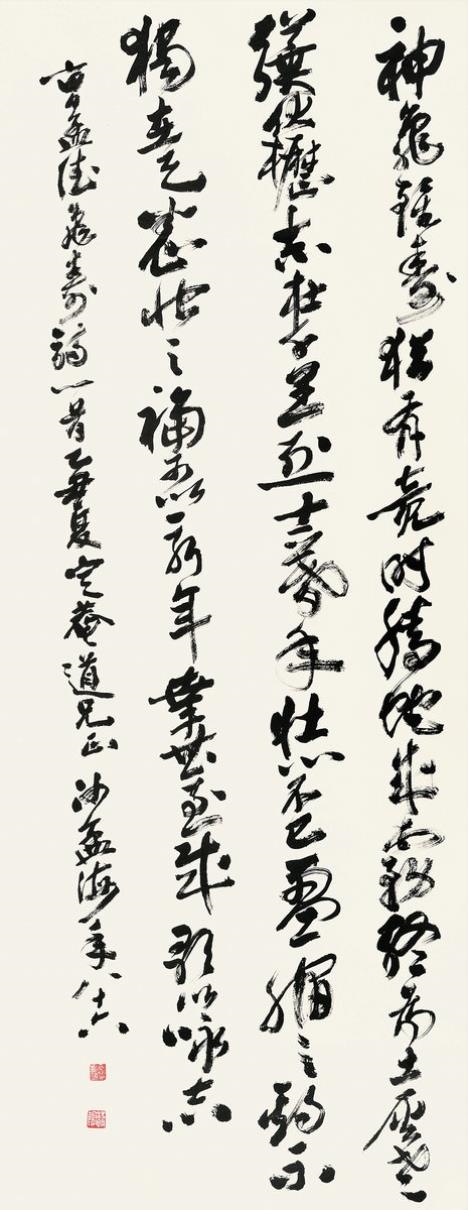 神龜雖壽猶有竟時騰蛇成霧終為土灰老
驥伏櫪志在千里烈士暮年壯心不已盈縮之期不
獨在天養怡之福可以永年幸甚至哉歌以詠志
曹孟德龜壽詩一首乙丑夏定菴道兄正沙孟海年八十六